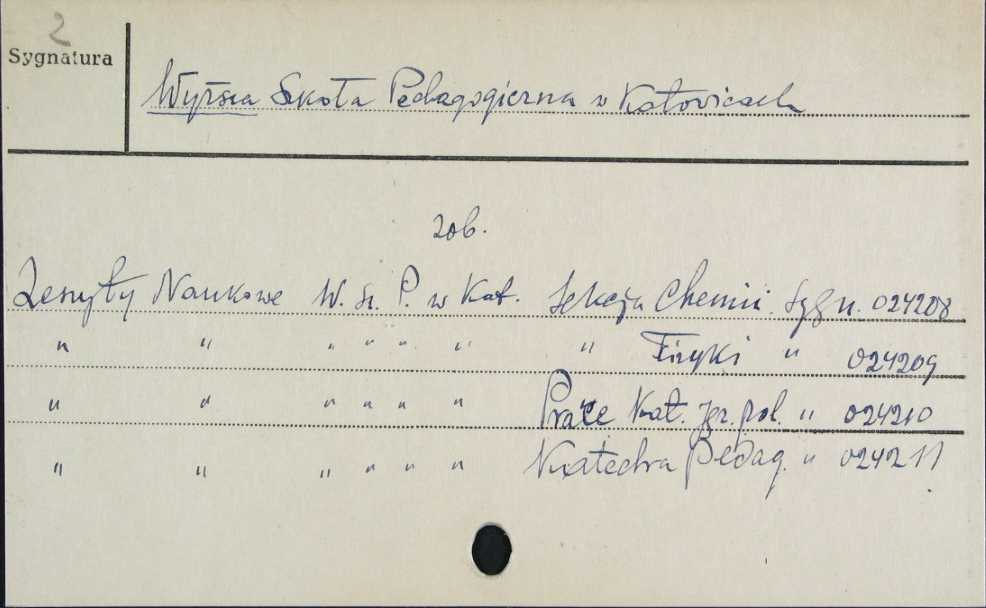 2
Sygnatura
Wyższa Szkoła Pedagogiczna w Katowicach
zob.
Zeszyty Naukowe W. Sz. P. w Kat. Sekcja Chemii Sygn. 024208
" " " " " " " Fizyki " 024209
" " " " " " Prace Kat. jęz. pol. " 024210
" " " " " " Katedra Pedag. " 024211